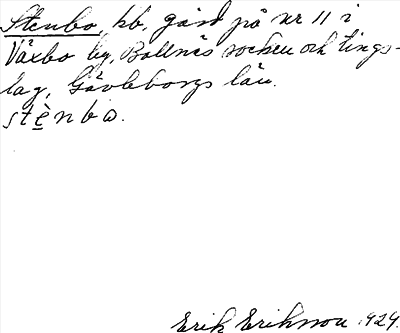 Stenbo kb, gård på nr 11 i
Växbo by, Bollnäs socken och tings-
lag, Gävleborgs län.
stènbω.
Erik Eriksson 1924.